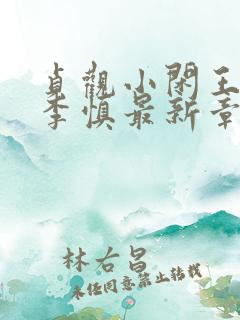 贞觀小閑王
李慎最新章
林右昌
未经同意禁止转载